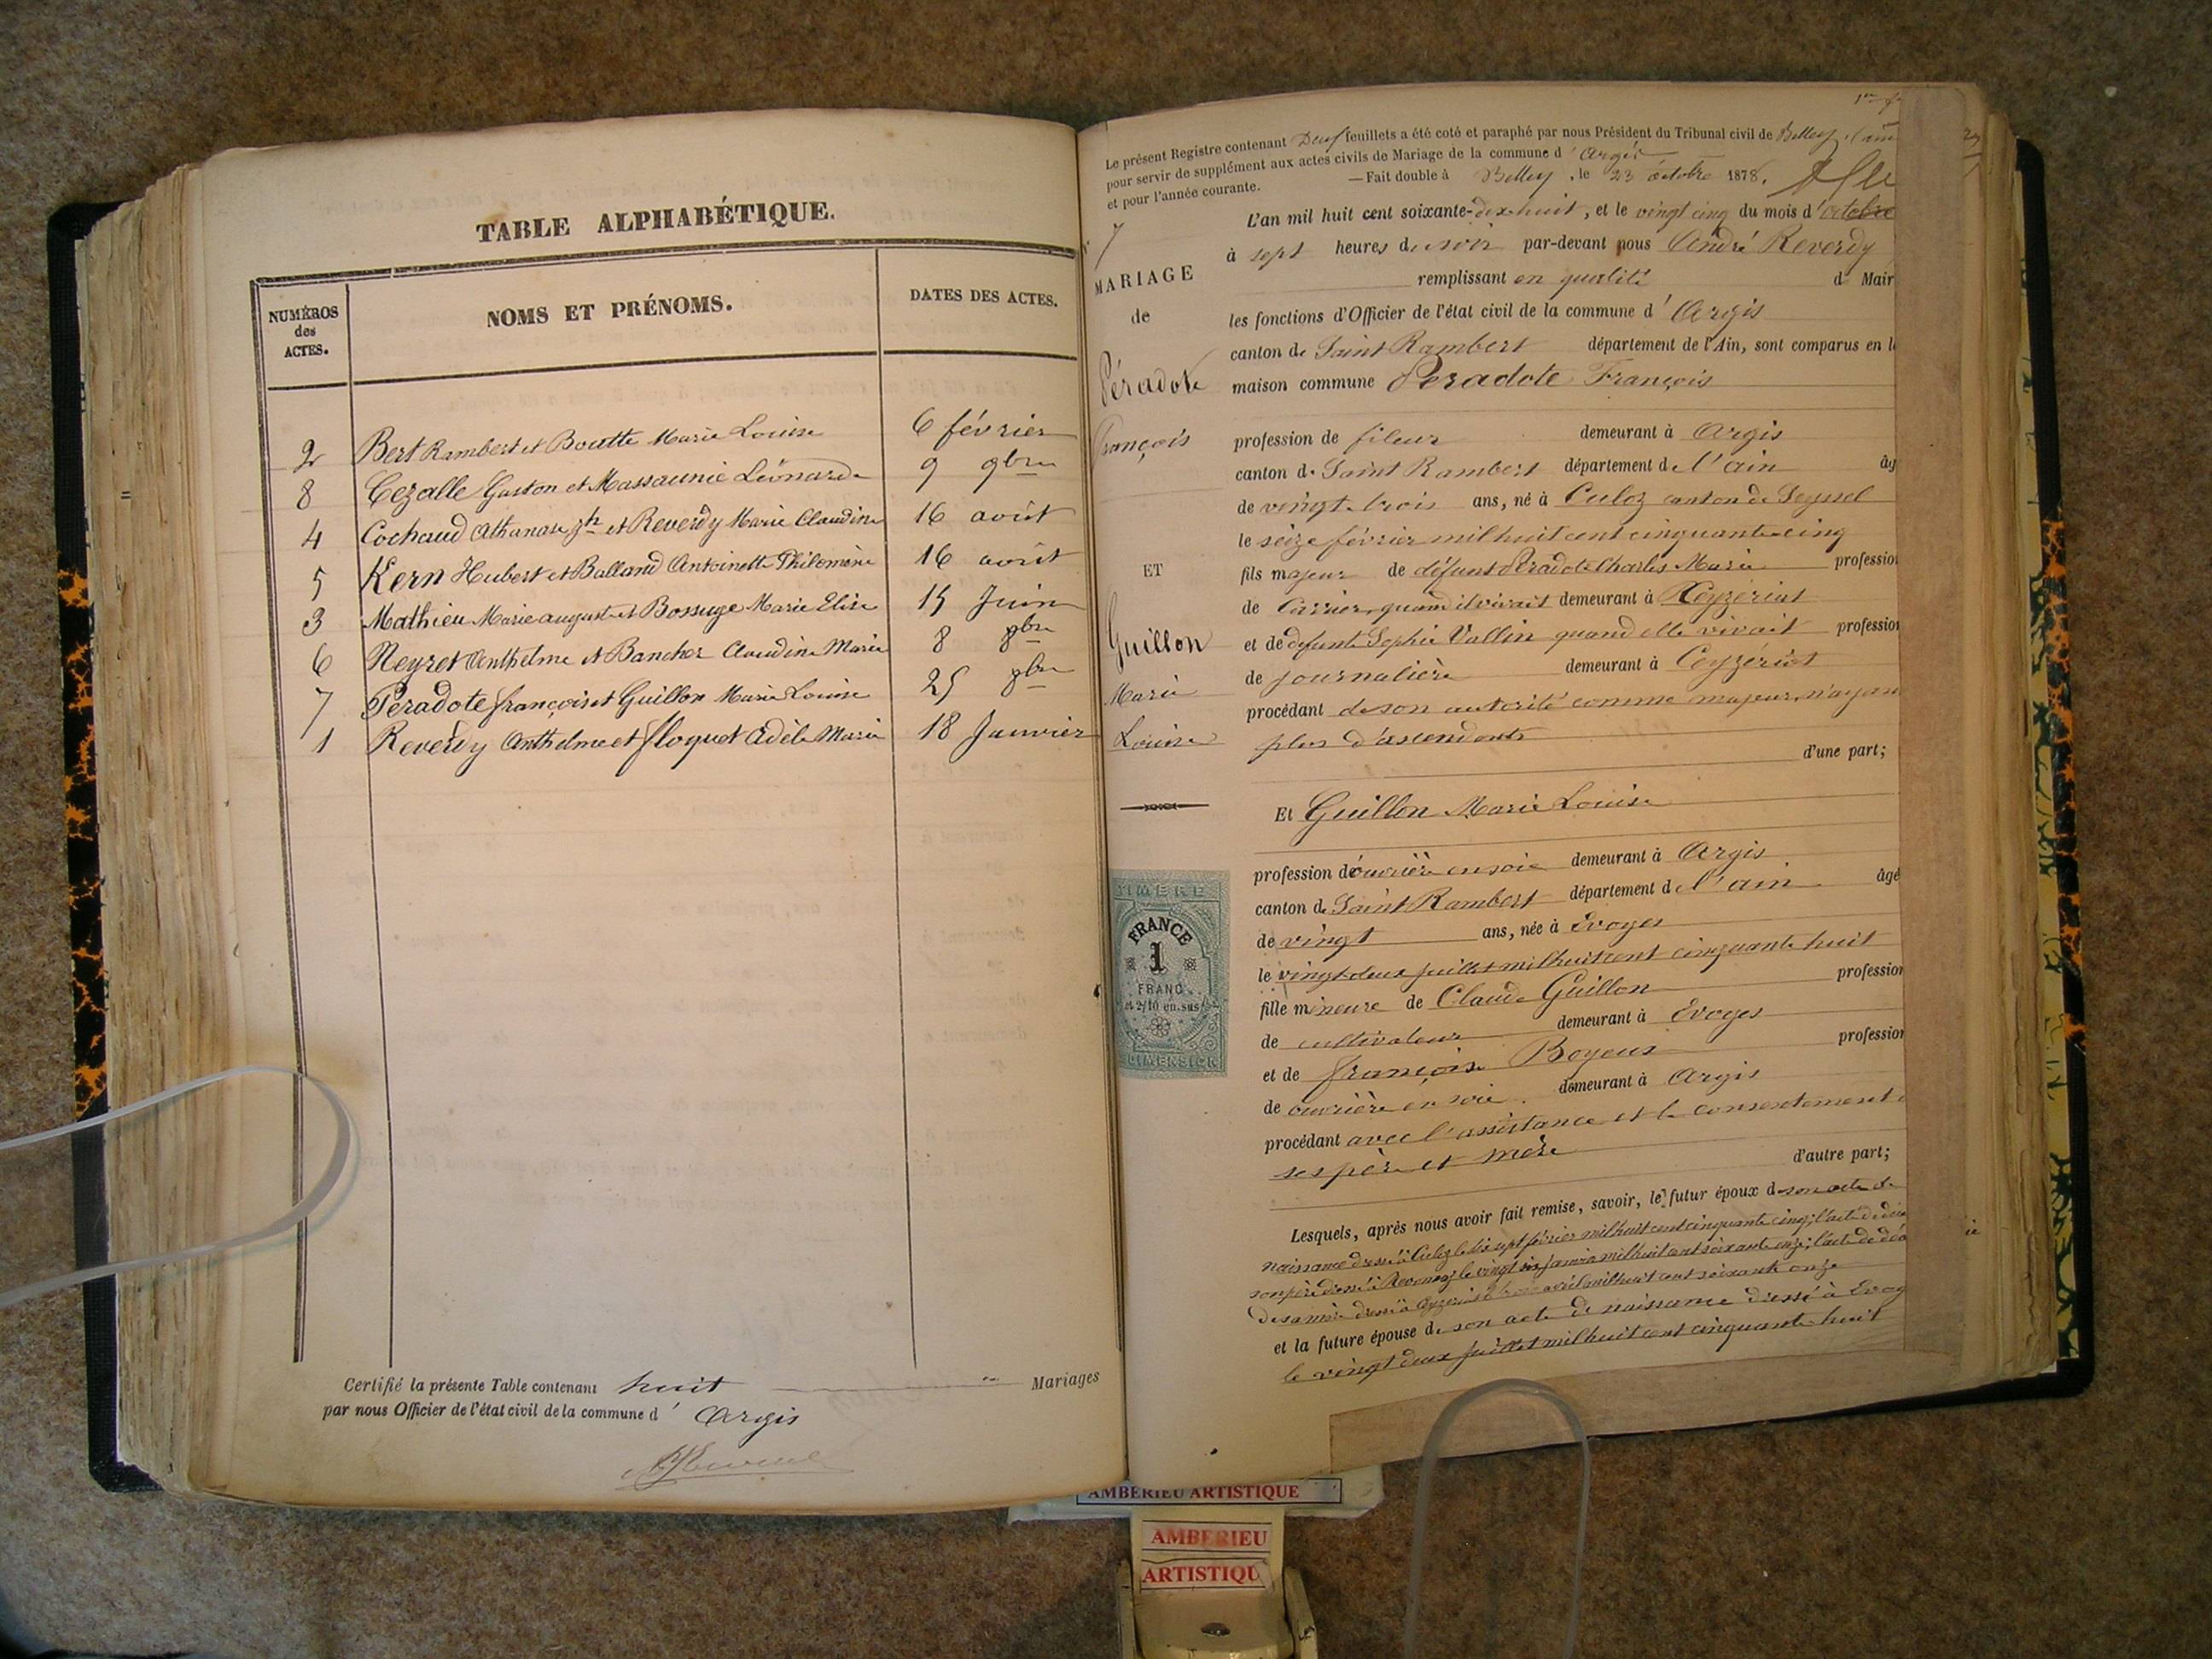 TABLE ALPHABÉTIQUE.
NUMÉROS des ACTES.
NOMS ET PRÉNOMS.
DATES DES ACTES.
2 Bert Rambert et Boutte Marie Louise 6 février
8 Cezalle Gaston et Massaunie Léonarde 9 9bre
4 Cochaud Athanase et Reverdy Marie Claudine 16 août
5 Kern Hubert et Balland Antoinette Philomène 16 août
3 Mathieu Marie auguste et Bossuge Marie Elise 15 Juin
6 Neyret Anthelme et Bancher Claudine Marie 8 8bre
7 Peradote françois et Guillon Marie Louise 25 8bre
1 Reverdy Anthelme et floquet Adèle Marie 18 Janvier
Certifié la présente Table contenant huit Mariages
par nous Officier de l'état civil de la commune d' Argis
Le présent Registre contenant Deux feuillets a été coté et paraphé par nous Président du Tribunal civil de Belley
pour servir de supplément aux actes civils de Mariage de la commune d' Argis
et pour l'année courante. —Fait double à Belley, le 23 octobre 1878.
7
MARIAGE
de
Péradote
François
ET
Guillon
Marie
Louise
L'an mil huit cent soixante-dix-huit, et le vingt cinq du mois d'octobre
à sept heures du soir par-devant nous André Reverdy
remplissant en qualité de Mair
les fonctions d'Officier de l'état civil de la commune d' Argis
canton de Saint Rambert département de l'Ain, sont comparus en l
maison commune Peradote François
profession de fileur demeurant à Argis
canton de Saint Rambert département de l'ain âg
de vingt-trois ans, né à Culoz canton de Seyssel
le seize février mil huit cent cinquante-cinq
fils majeur de défunt Péradote Charles Marie profession
de Carrier, quand il vivait demeurant à Ceyzériat
et de défunte Sophie Vallin quand elle vivait profession
de journalière demeurant à Ceyzériat
procédant de son autorité comme majeur, n'ayan
plus d'ascendants
d'une part;
Et Guillon Marie Louise
profession d'ouvrière en soie demeurant à Argis
canton de Saint Rambert département de l'ain âgé
de vingt ans, née à Evoges
le vingt-deux juillet mil huit cent cinquante huit
fille mineure de Claude Guillon profession
de cultivateur demeurant à Evoges
et de françoise Boyeux profession
de ouvrière en soie. demeurant à Argis
procédant avec l'assistance et le consentement
ses père et mère
d'autre part;
Lesquels, après nous avoir fait remise, savoir, le futur époux de son acte de
naissance dressé à Culoz le dix sept février mil huit cent cinquante cinq; l'acte de
son père dressé à le vingt janvier mil huit cent soixante onze; l'acte de
de sa mère dressé à Ceyzériat avril mil huit cent soixante onze
et la future épouse de son acte de naissance dressé à Evog
le vingt deux juillet mil huit cent cinquante-huit
TIMBRE
FRANCE
1
FRANC
et 2/10 en sus
DIMENSION
AMBERIEU ARTISTIQUE
AMBERIEU
ARTISTIQU